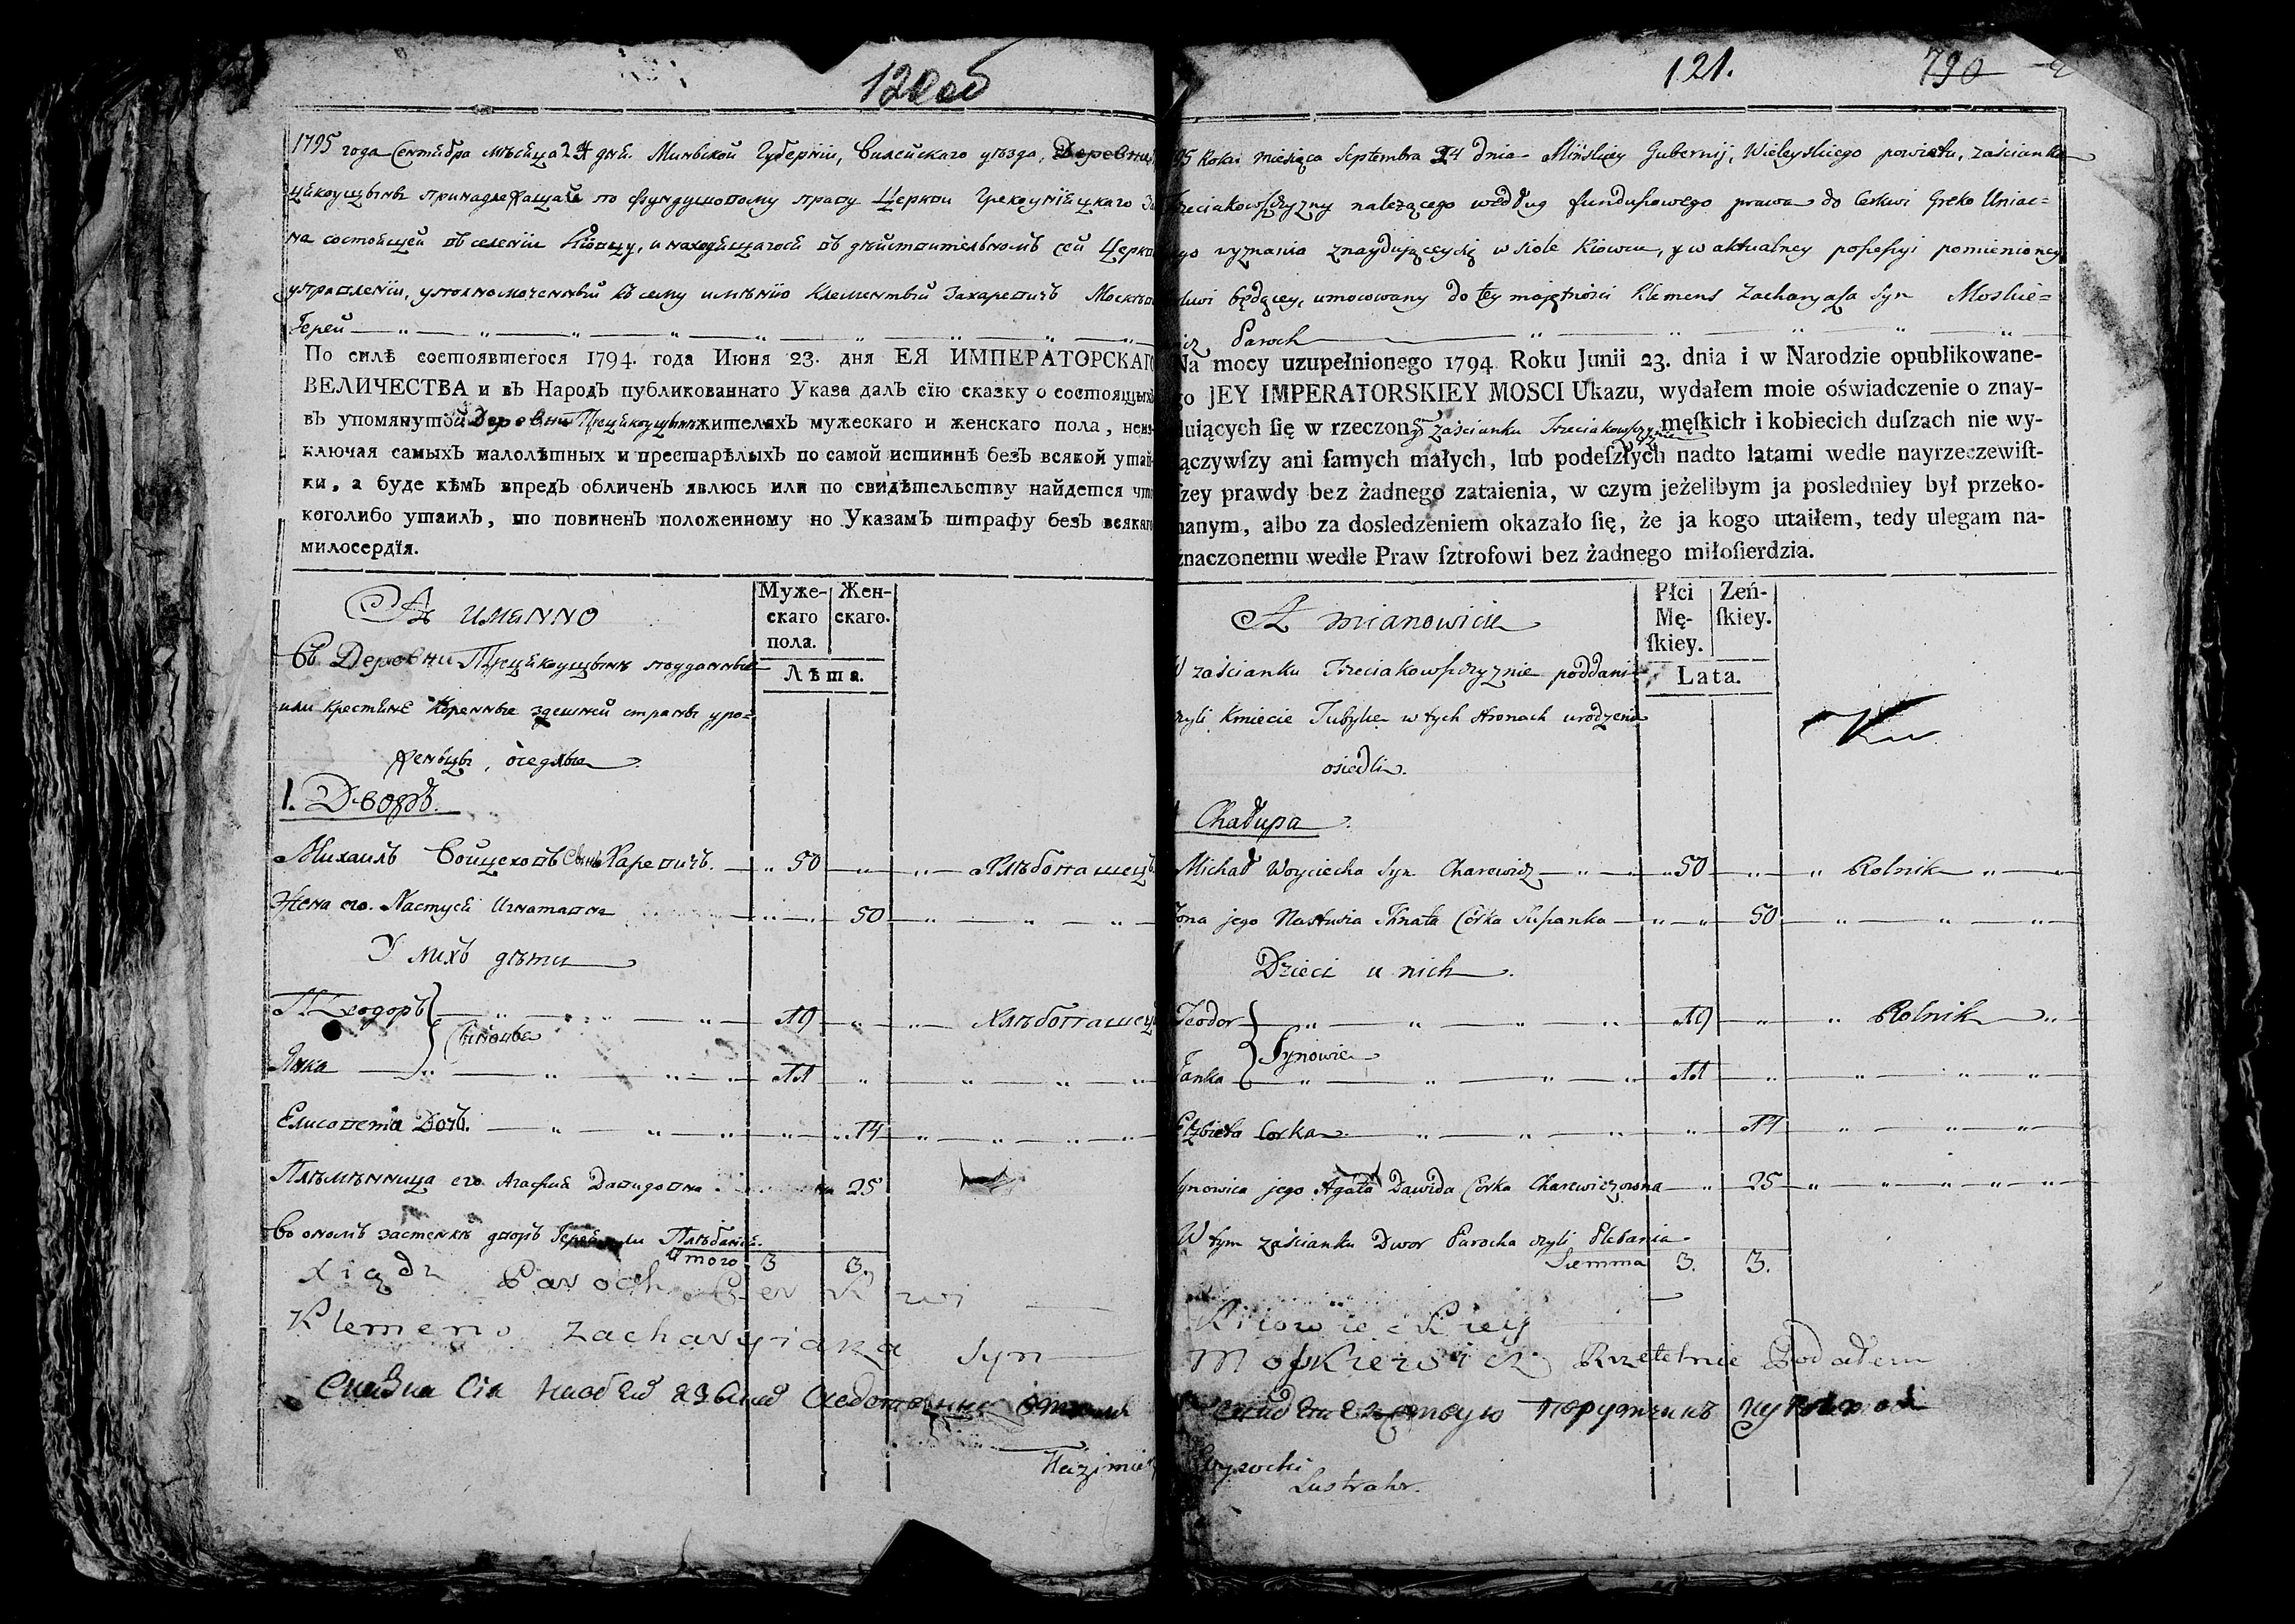 120об
1795 года Сентября мѣсяца 24 дня. Минской Губерніи, Вилейскаго уѣзда, Деревни
принадлежащей по фундушовому праву Церкви Грекоуніяцкаго
на состоящей въ селеніи Кіовцу, и находящагося въ дѣйствительномъ сей Церкви
управленіи, уполномоченный къ сему имѣнію Клементій Захаревичъ
Іерей
По силѣ состоявшегося 1794. года Июня 23. дня ЕЯ ИМПЕРАТОРСКАГО
ВЕЛИЧЕСТВА и въ Народъ публикованнаго Указа далъ сїю сказку о состоящихъ
въ упомянутой Деревни жителяхъ мужескаго и женскаго пола, неиз-
ключая самыхъ малолѣтныхъ и престарѣлыхъ по самой истиннѣ безъ всякой утай-
ки, а буде кѣмъ впредь обличенъ явлюсь или по свидѣтельству найдется что
коголибо утаилъ, то повиненъ положенному по Указамъ штрафу безъ всякаго
милосердїя.
А имянно
Муже-
скаго
пола.
Жен-
скаго.
Лѣта.
Въ Деревни подданные
или крестьяне коренные здешней страны уро-
женцы, оседлые
1. Дворъ.
Михаилъ Войцеховъ Сынъ Харевичъ. 50 Хлѣбопашецъ
Жена его Настуся Игнатовна 50
У нихъ дѣти
Теодоръ 19 Хлѣбопашецъ
Сыновья
Янка 11
Елисавета Дочь. 14
Племѣнница его Агафия Давидовна 25
Во ономъ застенкѣ дворъ Іерея или Плебанія.
Итого 3 3.
Xiądz Paroch Cerkwi
Klemens Zacharyiasza Syn
Сказка Сія на
Kazimierz
121.
790
95 Roku miesiąca Septembra 24 dnia Minskiey Gubernij, Wileyskiego powiatu, zaścianku
Trzeciakowszczyzny należącego według funduszowego prawa do Cerkwi Greko Uniac=
ego wyznania znayduiąceyśię w siole Kiowcu, y w aktualney possessyi pomienioney
Cerkwi będącey, umocowany do tey maiętności Klemens Zacharyasza Syn Moskie=
wicz Paroch
Na mocy uzupełnionego 1794 Roku Junii 23. dnia i w Narodzie opublikowane-
go JEY IMPERATORSKIEY MOSCI Ukazu, wydałem moie oświadczenie o znay-
duiących ſię w rzeczony zaścianku Trzeciakowszczyznie męſkich i kobiecich duſzach nie wy-
łączywſzy ani ſamych małych, lub podeſzłych nadto latami wedle nayrzeczewiſt-
ſzey prawdy bez żadnego zataienia, w czym jeżelibym ja posledniey był przeko-
nanym, albo za dosledzeniem okazało ſię, że ja kogo utaiłem, tedy ulegam na-
znaczonemu wedle Praw ſztrofowi bez żadnego miłoſierdzia.
A mianowicie
Płci
Mę-
ſkiey.
Zeń-
ſkiey.
Lata.
W zaścianku Trzeciakowszczyznie poddani
czyli Kmiecie Tubylce w tych stronach urodzeni
osiedli.
Chałupa
Michał Woyciecha Syn Charewicz 50 Rolnik
Żona jego Nastusia Ihnata Córka 50
Dzieci u nich
Teodor 19 Rolnik
Synowie
Janka 11
Elżbieta Corka 14
Synowica jego Agata Dawida Córka Charewiczowna 25
W tym zaścianku Dwor Parocha czyli Plebania.
Summa 3. 3.
Kiiowieckiey
Moskiewicz Rzetelnie Podałem
свидетельствую Порутчикъ
Wysocki
Lustrator.